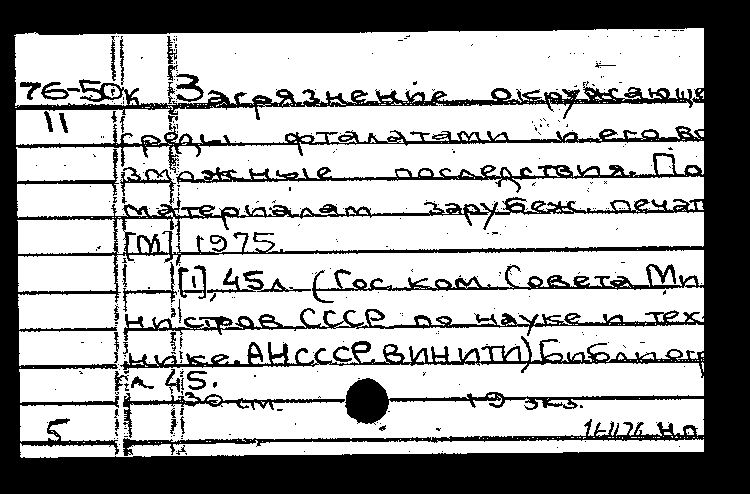 76-50к Загрязнение окружающе
11 среды фталатами и его во
зможные последствия. По
материалам зарубеж. печат
[М], 1975.
[1], 45л. (Гос. ком. Совета Ми
нистров СССР по науке и тех-
нике. АН СССР. ВИНИТИ) Библиогр
л. 45.
30 см. 19 экз.
5 Н.п